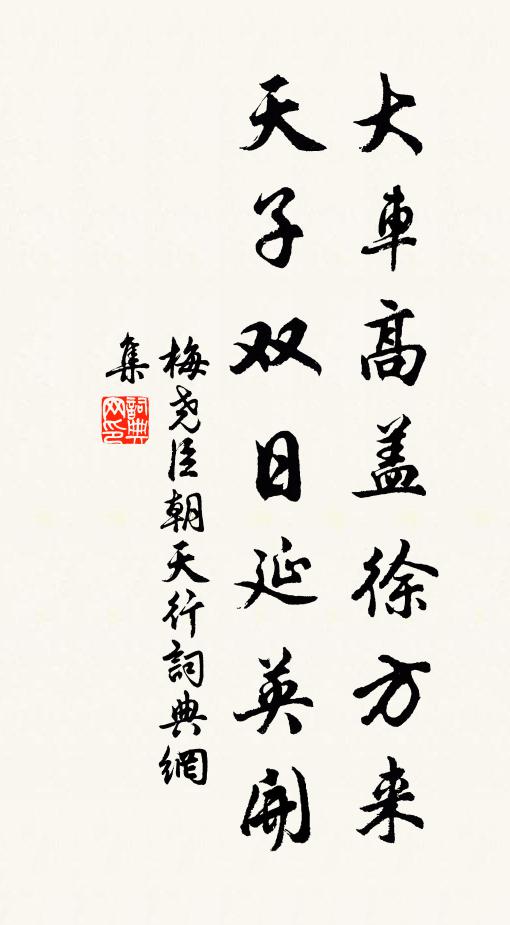 大車高盖徐方来
天子双日延英開
梅尧臣朝天行詞典網
集
詞典网印